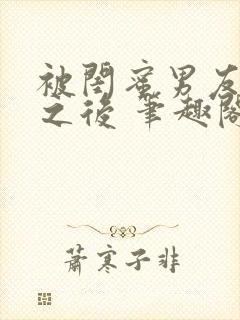 被閨蜜男友
之後 筆趣閣
蕭寒子非